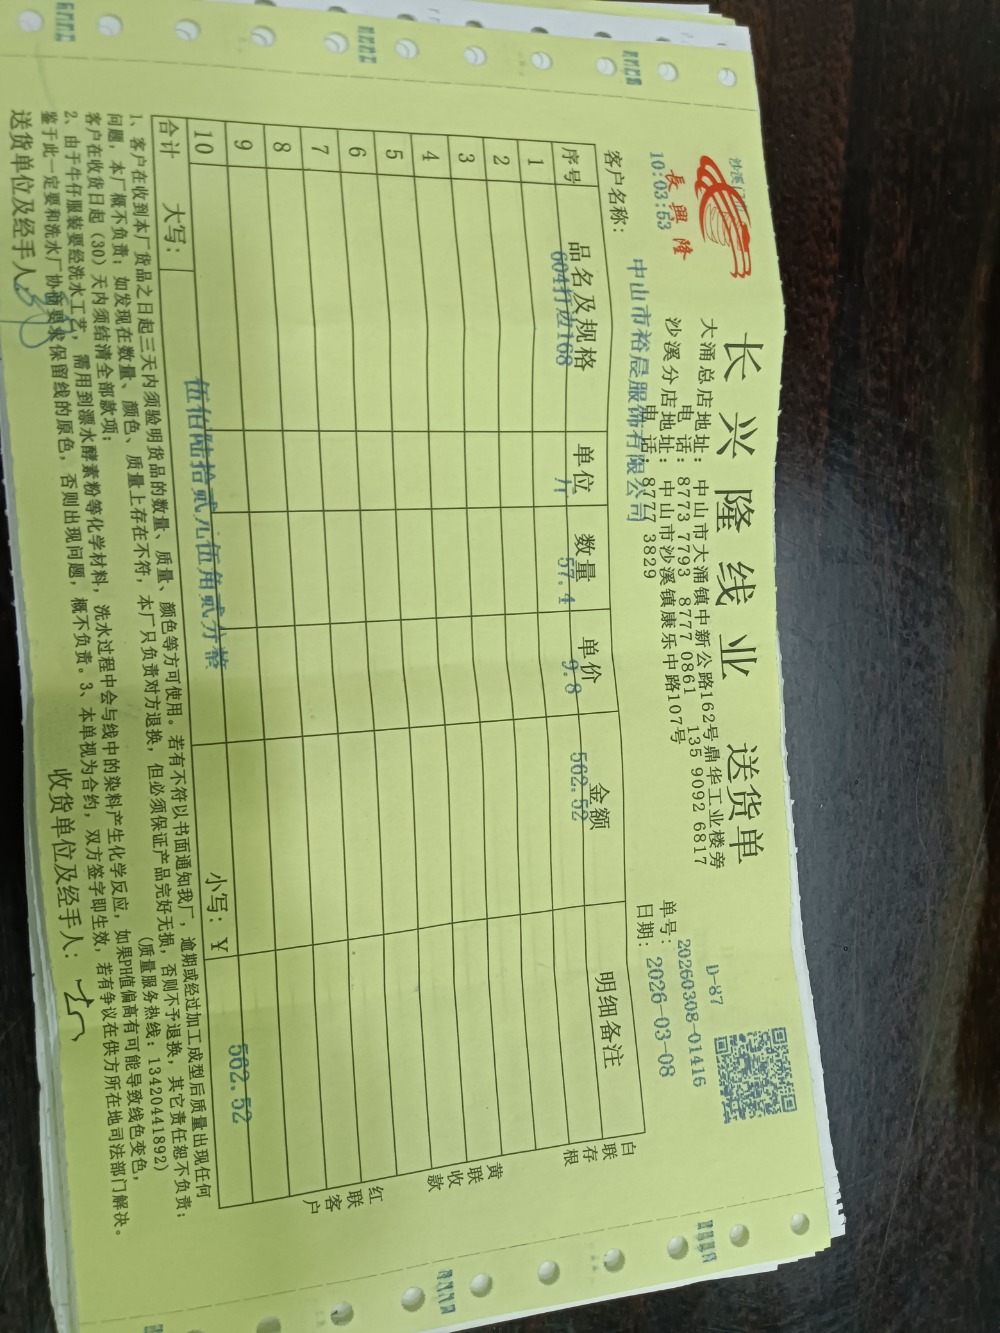 長興隆
沙溪
10:03:53
长兴隆线业 送货单
大涌总店地址: 中山市大涌镇中新公路162号鼎华工业楼旁
电 话: 8773 7793 8777 0861 135 9092 6817
沙溪分店地址: 中山市沙溪镇康乐中路107号
电 话: 8777 3829
D-87
单号: 20260308-01416
日期: 2026-03-08
客户名称: 中山市裕晟服饰有限公司
序号 品名及规格 单位 数量 单价 金额 明细备注
604打边168 斤 57.4 9.8 562.52
1
2
3
4
5
6
7
8
9
10
合计 大写: 伍佰陆拾贰元伍角贰分整 小写: Y 562.52
白联存根
黄联收款
红联客户
1、客户在收到本厂货品之日起三天内须验明货品的数量、质量、颜色等方可使用。若有不符以书面通知我厂,逾期或经过加工成型后质量出现任何
问题,本厂概不负责;如发现在数量、颜色、质量上存在不符,本厂只负责对方退换,但必须保证产品完好无损,否则不予退换,其它责任恕不负责;
客户在收货日起(30)天内须结清全部款项; (质量服务热线: 13420441892)
2、由于牛仔服装要经洗水工艺,需用到漂水酵素粉等化学材料,洗水过程中会与线中的染料产生化学反应,如果PH值偏高有可能导致线色变色,
鉴于此一定要和洗水厂协商要求保留线的原色,否则出现问题,概不负责。3、本单视为合约,双方签字即生效,若有争议在供方所在地司法部门解决。
送货单位及经手人: 收货单位及经手人: